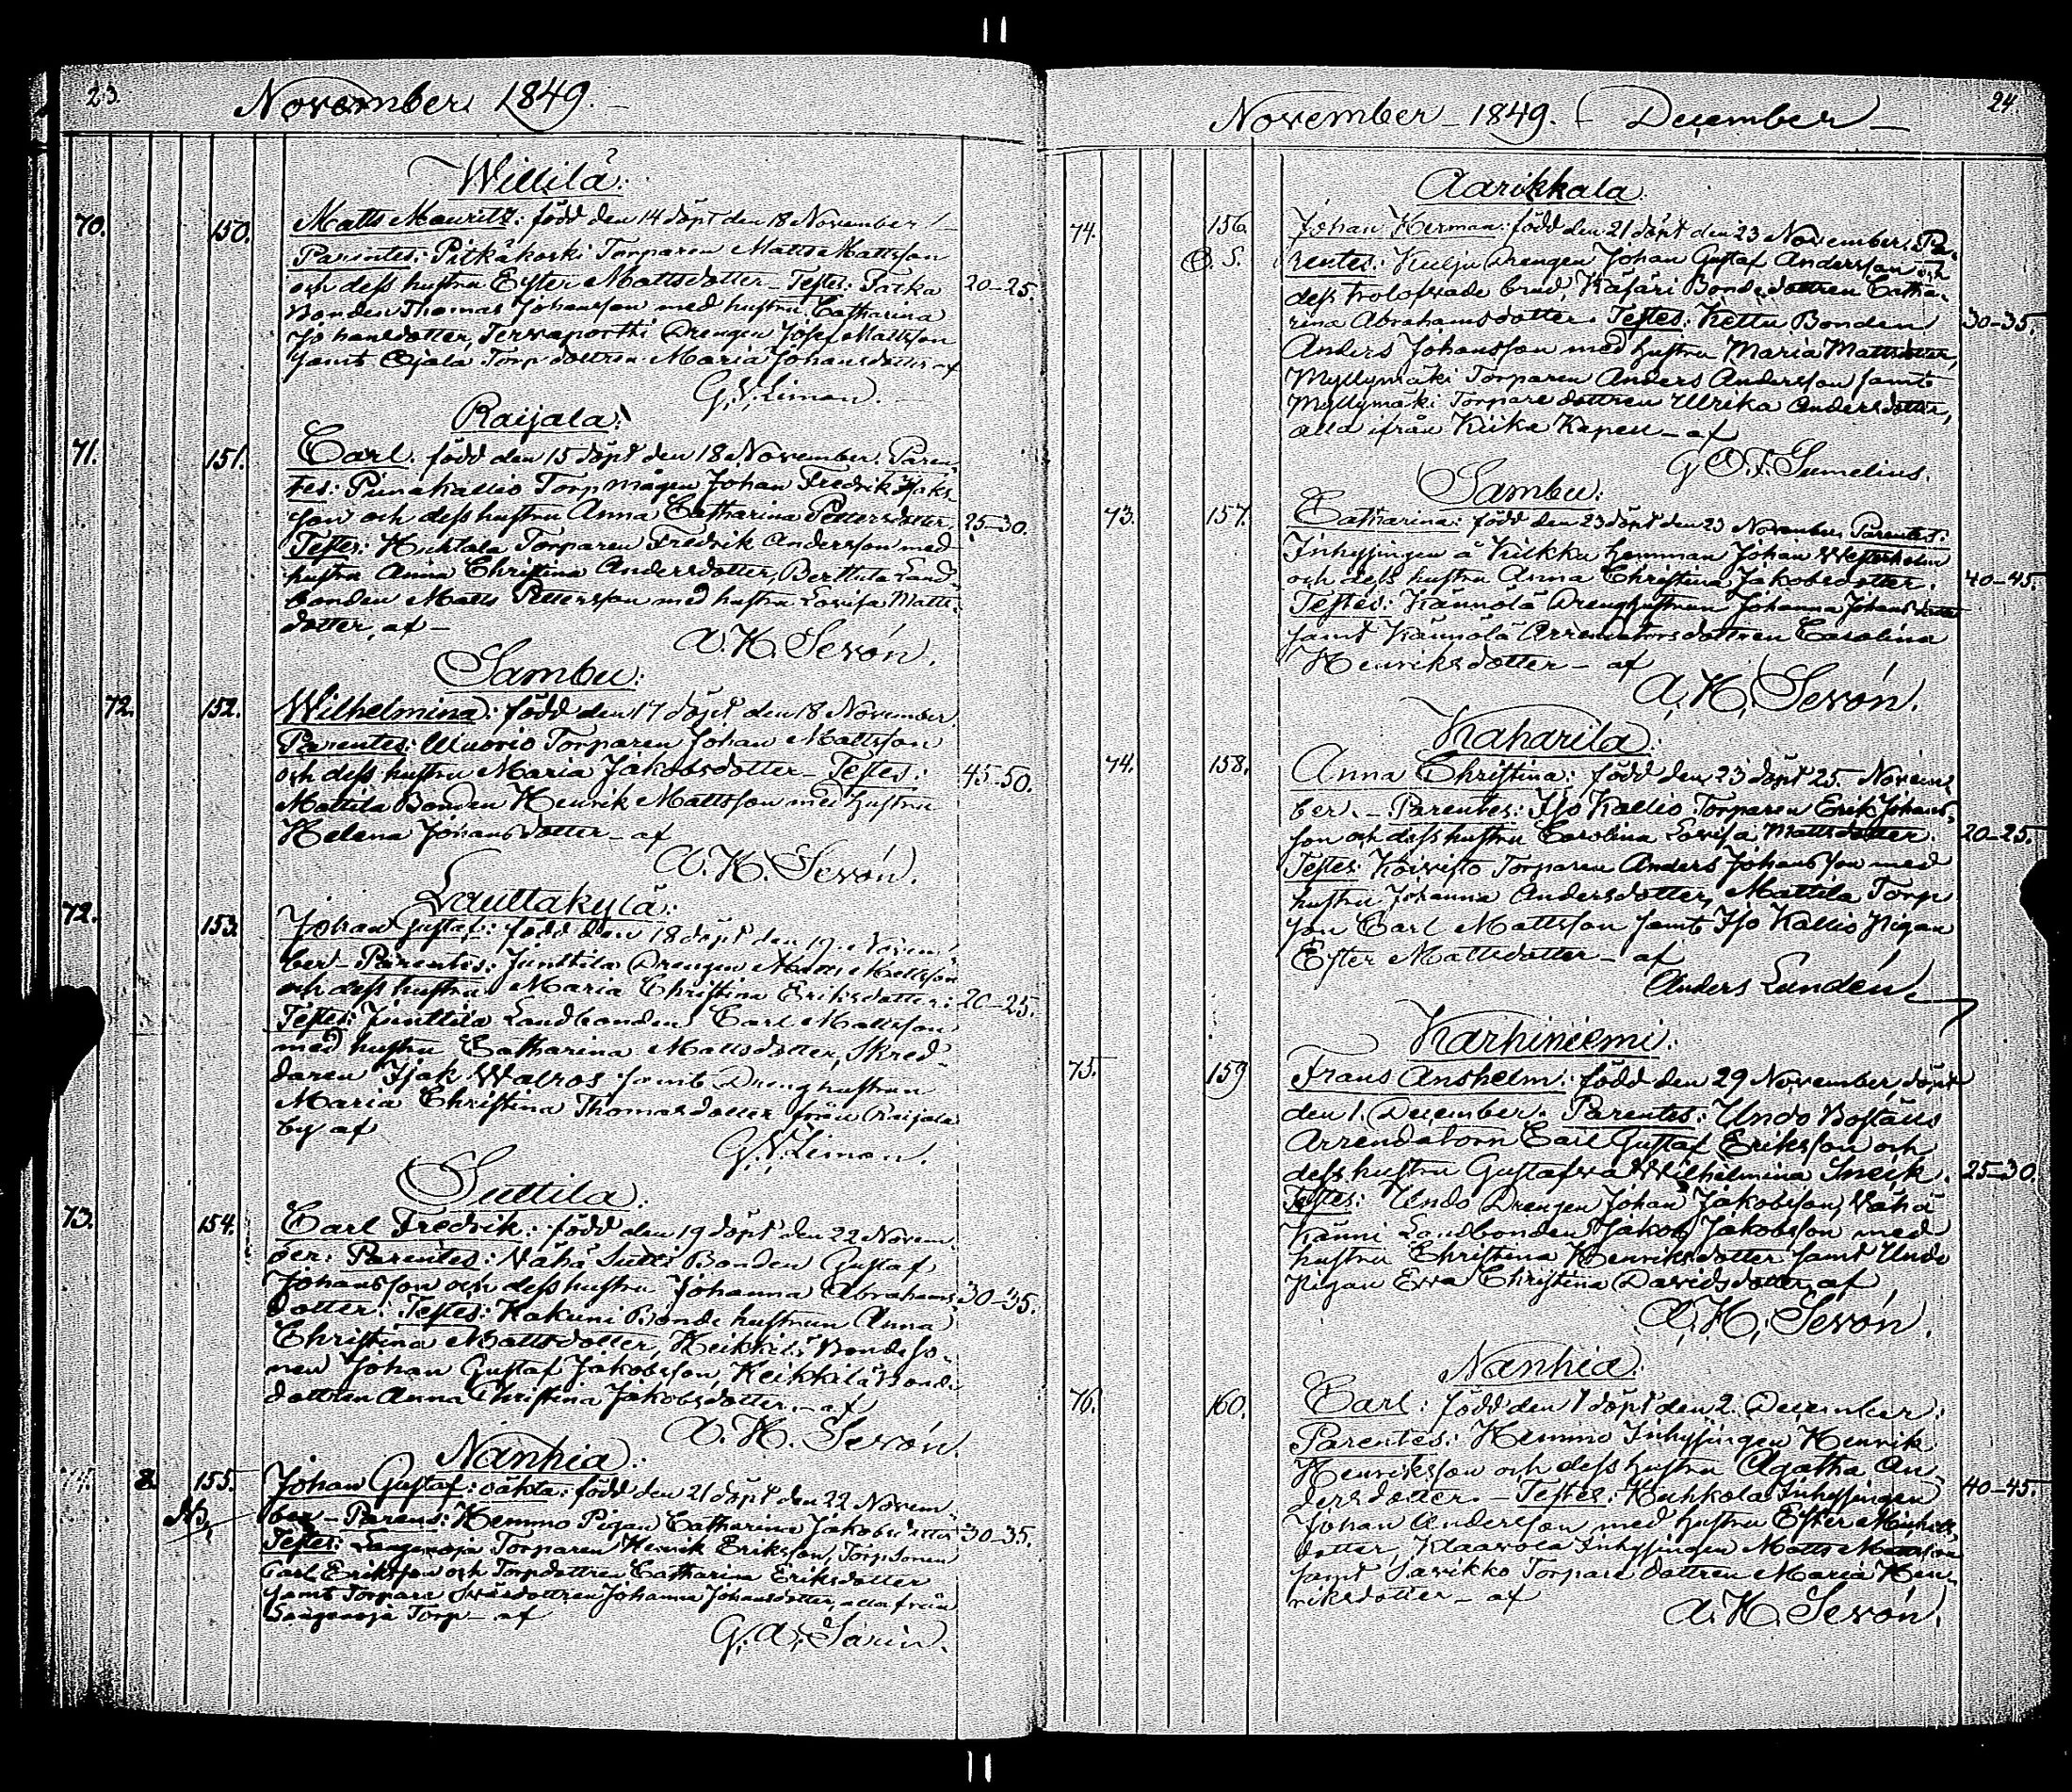 23.
November 1849.
Willilä:
70. 150. Matts Mauritz: född den 14 döpt den 18 November
Parentes: Pitkäkoski Torparen Matts Mattsson
och dess hustru Ester Mattsdotter – Testes: Patka 20–25.
Bonden Thomas Johansson med hustru Catharina
Johansdotter, Tervaportti Drengen Josef Mattsson
samt Ojala Torp dottren Maria Johansdotter – af
G. V. Liman.
Raijala:
71. 151. Carl. född den 15 döpt den 18 November. Paren-
tes: Piinakallio Torpmågen Johan Fredrik Isaks-
son och dess hustru Anna Catharina Pettersdotter. 25–30.
Testes: Huhtala Torparen Fredrik Andersson med
hustru Anna Christina Andersdotter, Berttula Land-
bonden Matts Pettersson med hustru Lovisa Matts-
dotter, af –
A. H. Sevón.
Sambu:
72. 152. Wilhelmina: född den 17 döpt den 18 November.
Parentes: Wuorio Torparen Johan Mattsson
och dess hustru Maria Jakobsdotter – Testes: 45–50.
Mattila Bonden Henrik Mattsson med hustru
Helena Johansdotter – af
A. H. Sevón.
Lauttakylä:
72. 153. Johan Gustaf: född den 18 döpt den 19 Novem-
ber – Parentes: Junttila Drengen Matts Mattsson
och dess hustru Maria Christina Eriksdotter: 20–25.
Testes: Junttila Landbonden Carl Mattsson
med hustru Catharina Mattsdotter, Skred-
daren Isak Walros samt Dreng hustrun
Maria Christina Thomasdotter från Raijala
by af
G. V. Liman.
Suttila:
73. 154. Carl Fredrik: född den 19 döpt den 22 Novem-
ber: Parentes: Vähä Sutti Bonden Gustaf
Johansson och dess hustru Johanna Abrahams- 30–35.
dotter: Testes: Kakuni Bonde hustrun Anna
Christina Mattsdotter, Heikkilä Bondeso-
nen Johan Gustaf Jakobsson, Heikkilä Bonde
dottren Anna Christina Jakobsdotter. – af
A. H. Sevón.
Nanhia:
8. 155. Johan Gustaf: oäkta: född den 21 döpt den 22 Novem-
Nb. ber – Parens: Hemmo Pigan Catharina Jakobsdotter 30–35.
Testes: Langenoja Torparen Henrik Eriksson, Torpsonen
Carl Eriksson och Torpdottren Catharina Eriksdotter
samt Torpare Svärdottren Johanna Johansdotter, alla från
Torp – af
G. A. Sarin.
24
November – 1849. – December –
Aarikkala.
74. 156. Johan Herman: född den 21 döpt den 23 November. Pa-
O. S. rentes: Kulju Drengen Johan Gustaf Andersson och
dess trolofvade brud, Käfäri Bondedottren Catha-
rina Abrahamsdotter. Testes: Kettu Bonden 30–35.
Anders Johansson med hustru Maria Mattsdotter,
Myllymäki Torparen Anders Andersson samt
Myllymäki Torpare dottren Ulrika Andersdotter,
alla ifrån Kiika Kapell – af
G. O. F. Sumelius.
Sambu:
73. 157. Catharina: född den 23 döpt den 23 November Parentes:
Inhysingen å Kilkku hemman Johan Westerholm
och dess hustru Anna Christina Jakobsdotter. 40–45.
Testes: Kännölä Drenghustrun Johanna Johansdotter
samt Kännölä Arrendatorsdottren Carolina
Henriksdotter – af
A. H. Sevón.
Kaharila:
74. 158. Anna Christina: född den 23 döpt 25 Novem-
ber. – Parentes: Iso Kallio Torparen Erik Johans-
son och dess hustru Carolina Lovisa Mattsdotter. 20–25.
Testes: Koivisto Torparen Anders Johansson med
hustru Johanna Andersdotter, Mattila Torp
son Carl Mattsson samt Iso Kallio Pigan
Ester Mattsdotter – af
Anders Lundén.
Karhiniemi:
75. 159 Frans Anshelm: född den 29 November, döpt
den 1. December. Parentes: Undo Boställs
Arrendatorn Carl Gustaf Eriksson och
dess hustru Gustafva Wilhelmina Sneck. 25–30
Testes: Undo Drengen Johan Jakobsson, Vähä
Känni Landbonden Jakob Jakobsson med
hustru Christina Henriksdotter samt Undo
Pigan Eva Christina Davidsdotter, af
A. H. Sevón.
Nanhia:
76. 160. Carl: född den 1 döpt den 2. December:
Parentes: Hemmo Inhysingen Henrik
Henriksson och dess hustru Agatha An-
dersdotter. – Testes: Kuhkola Inhysingen 40–45.
Johan Andersson med hustru Ester Michels-
dotter, Klaavola Inhysingen Matts Mattsson
samt Savikko Torpare dottren Maria Hen-
riksdotter – af
A. H. Sevón.